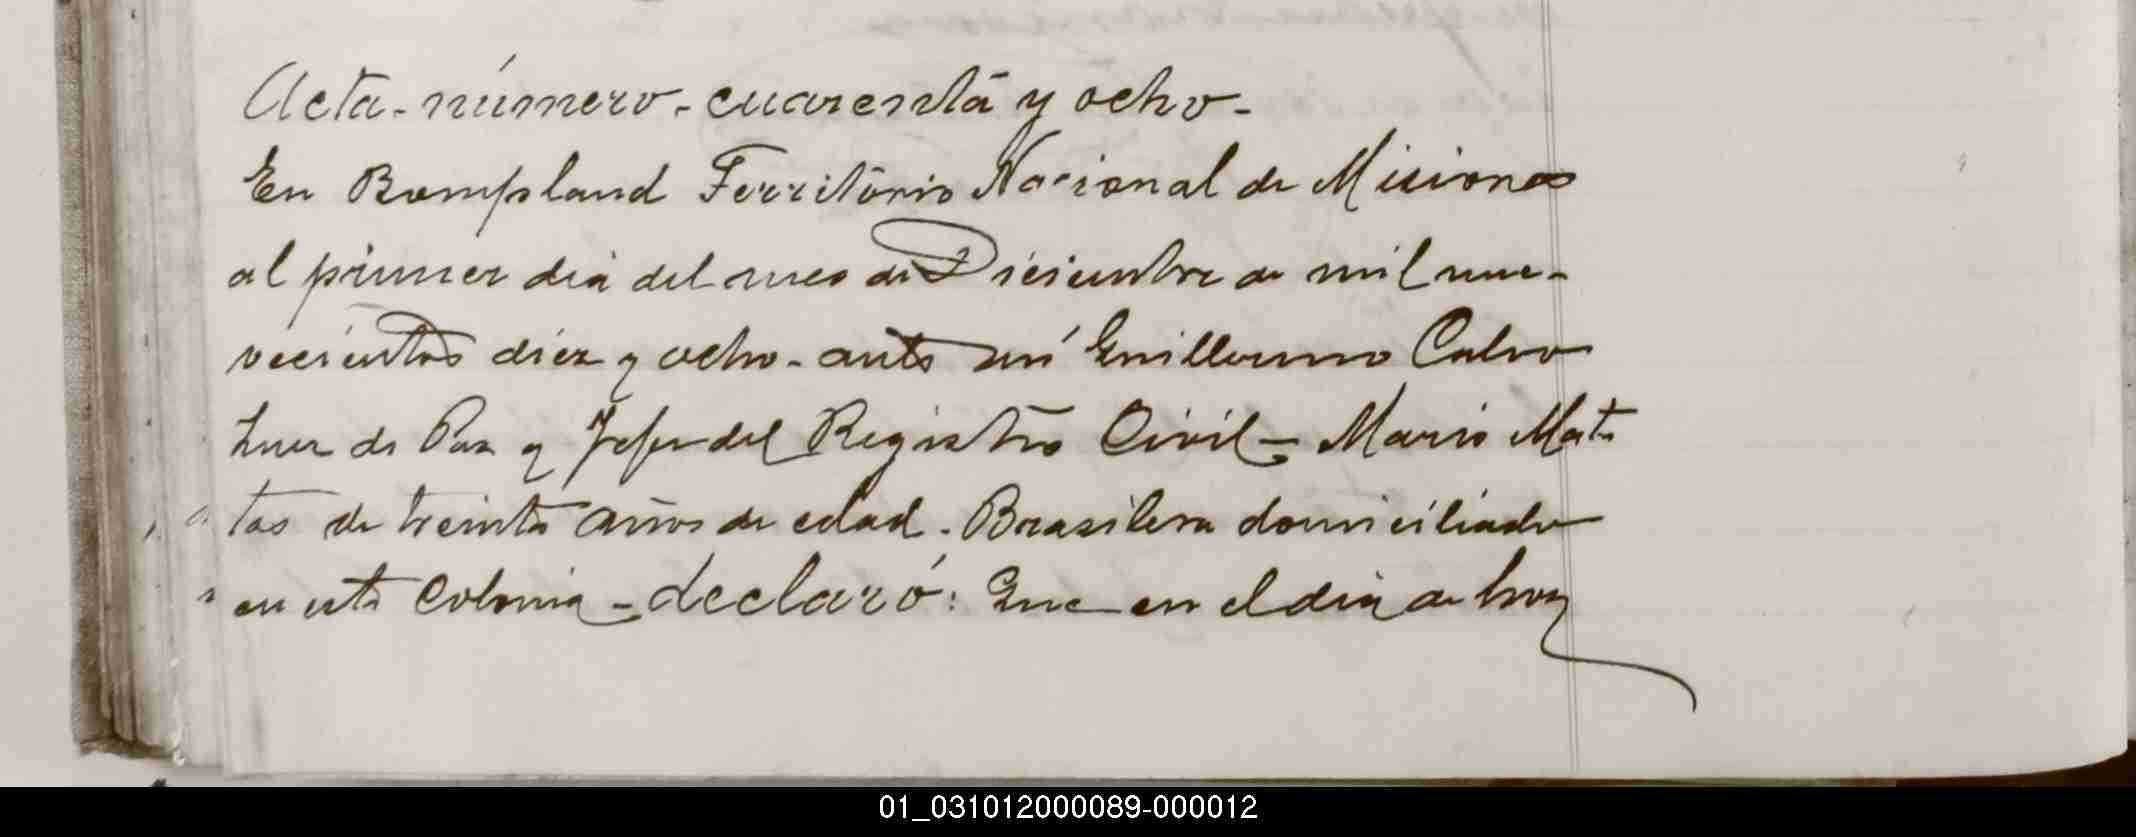 Acta - número - cuarenta y ocho -
En Bompland Territorio Nacional de Misiones
al primer dia del mes de Diciembre de mil nue-
vecientos diez y ocho - ante mí Guillermo Calvo
Juez de Paz y Jefe del Registro Civil - Mario Mat
tos de treinta años de edad. Brasilero domiciliado
en esta Colonia - declaró: Que en el dia de hoy
01_031012000089-000012